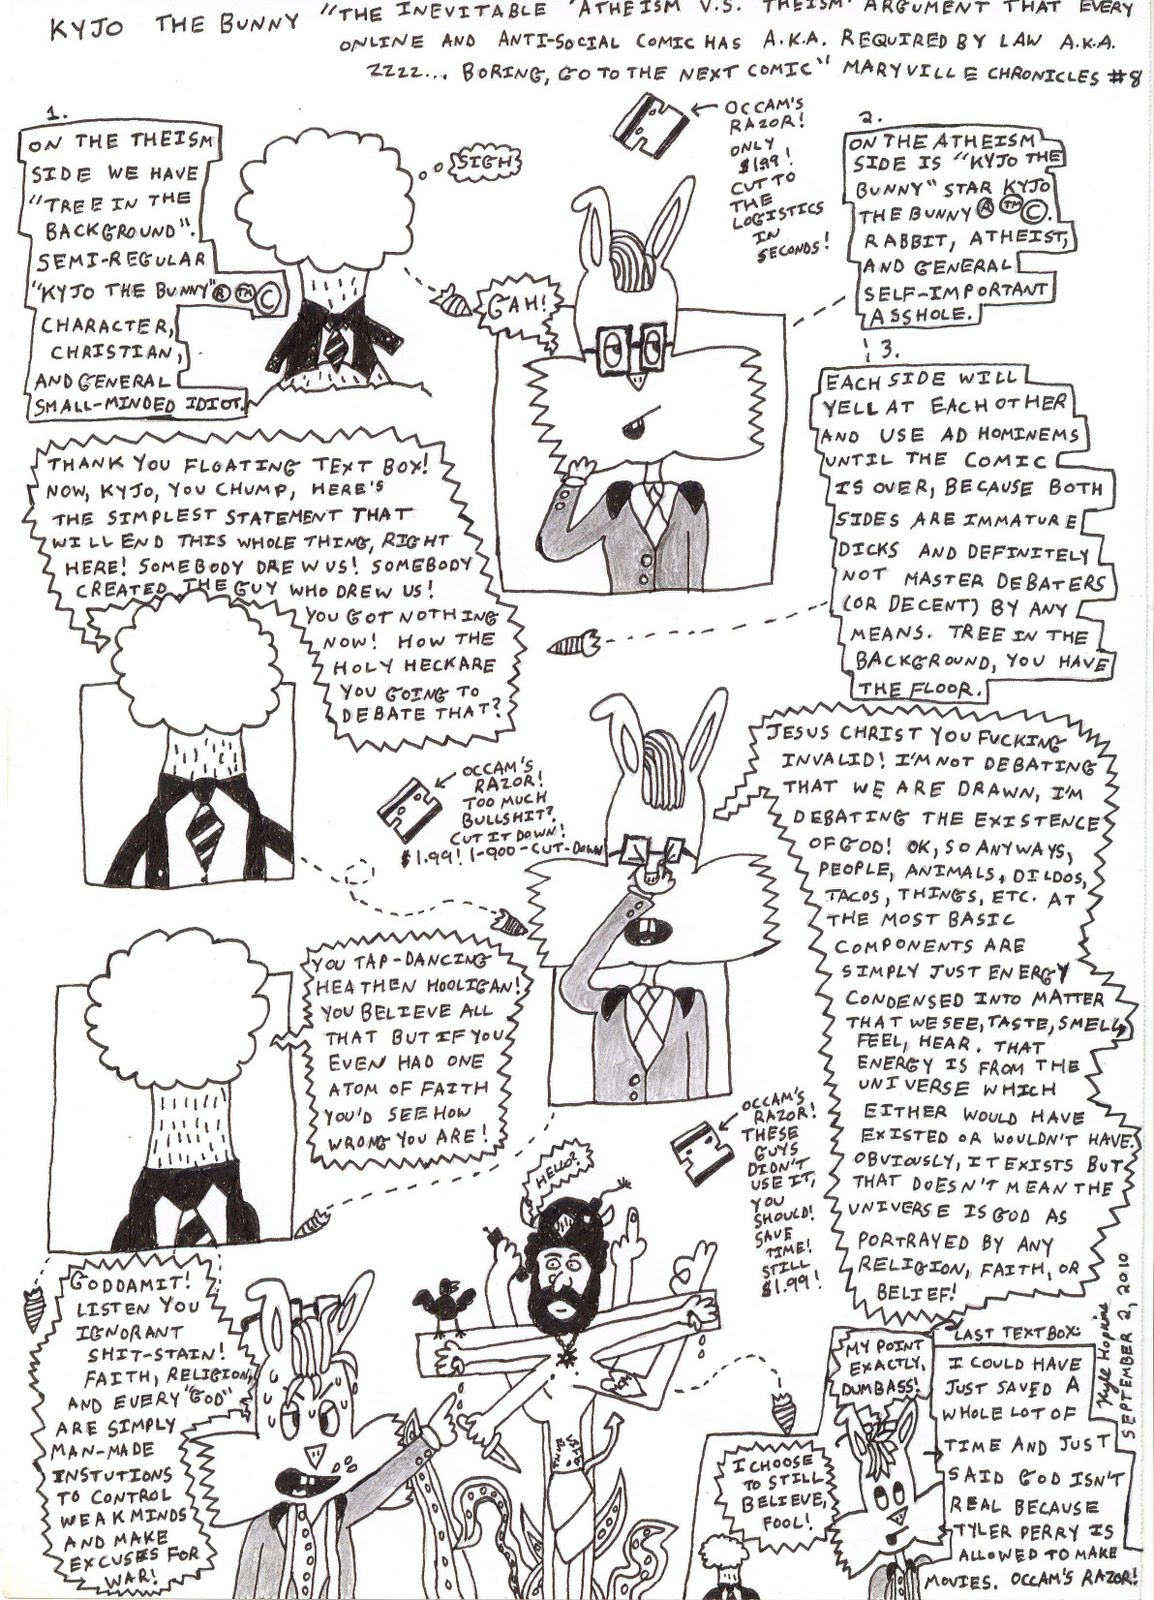 KYJO THE BUNNY "THE INEVITABLE 'ATHEISM V.S. THEISM' ARGUMENT THAT EVERY
ONLINE AND ANTI-SOCIAL COMIC HAS A.K.A. REQUIRED BY LAW A.K.A.
ZZZZ... BORING, GO TO THE NEXT COMIC" MARYVILLE CHRONICLES #8
1.
ON THE THEISM
SIDE WE HAVE
"TREE IN THE
BACKGROUND".
SEMI-REGULAR
"KYJO THE BUNNY"® ™ ©
CHARACTER,
CHRISTIAN,
AND GENERAL
SMALL-MINDED IDIOT.
SIGH
OCCAM'S
RAZOR!
ONLY
$1.99!
CUT TO
THE
LOGISTICS
IN
SECONDS!
GAH!
2.
ON THE ATHEISM
SIDE IS "KYJO THE
BUNNY" STAR KYJO
THE BUNNY ® ™ ©.
RABBIT, ATHEIST,
AND GENERAL
SELF-IMPORTANT
ASSHOLE.
3.
EACH SIDE WILL
YELL AT EACH OTHER
AND USE AD HOMINEMS
UNTIL THE COMIC
IS OVER, BECAUSE BOTH
SIDES ARE IMMATURE
DICKS AND DEFINITELY
NOT MASTER DEBATERS
(OR DECENT) BY ANY
MEANS. TREE IN THE
BACKGROUND, YOU HAVE
THE FLOOR.
THANK YOU FLOATING TEXT BOX!
NOW, KYJO, YOU CHUMP, HERE'S
THE SIMPLEST STATEMENT THAT
WILL END THIS WHOLE THING, RIGHT
HERE! SOMEBODY DREW US! SOMEBODY
CREATED THE GUY WHO DREW US!
YOU GOT NOTHING
NOW! HOW THE
HOLY HECKARE
YOU GOING TO
DEBATE THAT?
OCCAM'S
RAZOR!
TOO MUCH
BULLSHIT?
CUT IT DOWN!
$1.99! 1-900-CUT-DOWN
JESUS CHRIST YOU FUCKING
INVALID! I'M NOT DEBATING
THAT WE ARE DRAWN, I'M
DEBATING THE EXISTENCE
OF GOD! OK, SO ANYWAYS,
PEOPLE, ANIMALS, DILDOS,
TACOS, THINGS, ETC. AT
THE MOST BASIC
COMPONENTS ARE
SIMPLY JUST ENERGY
CONDENSED INTO MATTER
THAT WE SEE, TASTE, SMELL,
FEEL, HEAR. THAT
ENERGY IS FROM THE
UNIVERSE WHICH
EITHER WOULD HAVE
EXISTED OR WOULDN'T HAVE.
OBVIOUSLY, IT EXISTS BUT
THAT DOESN'T MEAN THE
UNIVERSE IS GOD AS
PORTRAYED BY ANY
RELIGION, FAITH, OR
BELIEF!
YOU TAP-DANCING
HEATHEN HOOLIGAN!
YOU BELIEVE ALL
THAT BUT IF YOU
EVEN HAD ONE
ATOM OF FAITH
YOU'D SEE HOW
WRONG YOU ARE!
OCCAM'S
RAZOR!
THESE
GUYS
DIDN'T
USE IT,
YOU
SHOULD!
SAVE
TIME!
STILL
$1.99!
HELLO?
GODDAMIT!
LISTEN YOU
IGNORANT
SHIT-STAIN!
FAITH, RELIGION,
AND EVERY "GOD"
ARE SIMPLY
MAN-MADE
INSTUTIONS
TO CONTROL
WEAK MINDS
AND MAKE
EXCUSES FOR
WAR!
I CHOOSE
TO STILL
BELIEVE,
FOOL!
MY POINT
EXACTLY,
DUMBASS!
LAST TEXT BOX:
I COULD HAVE
JUST SAVED A
WHOLE LOT OF
TIME AND JUST
SAID GOD ISN'T
REAL BECAUSE
TYLER PERRY IS
ALLOWED TO MAKE
MOVIES. OCCAM'S RAZOR!
Kyle Hopkins
SEPTEMBER 2, 2010